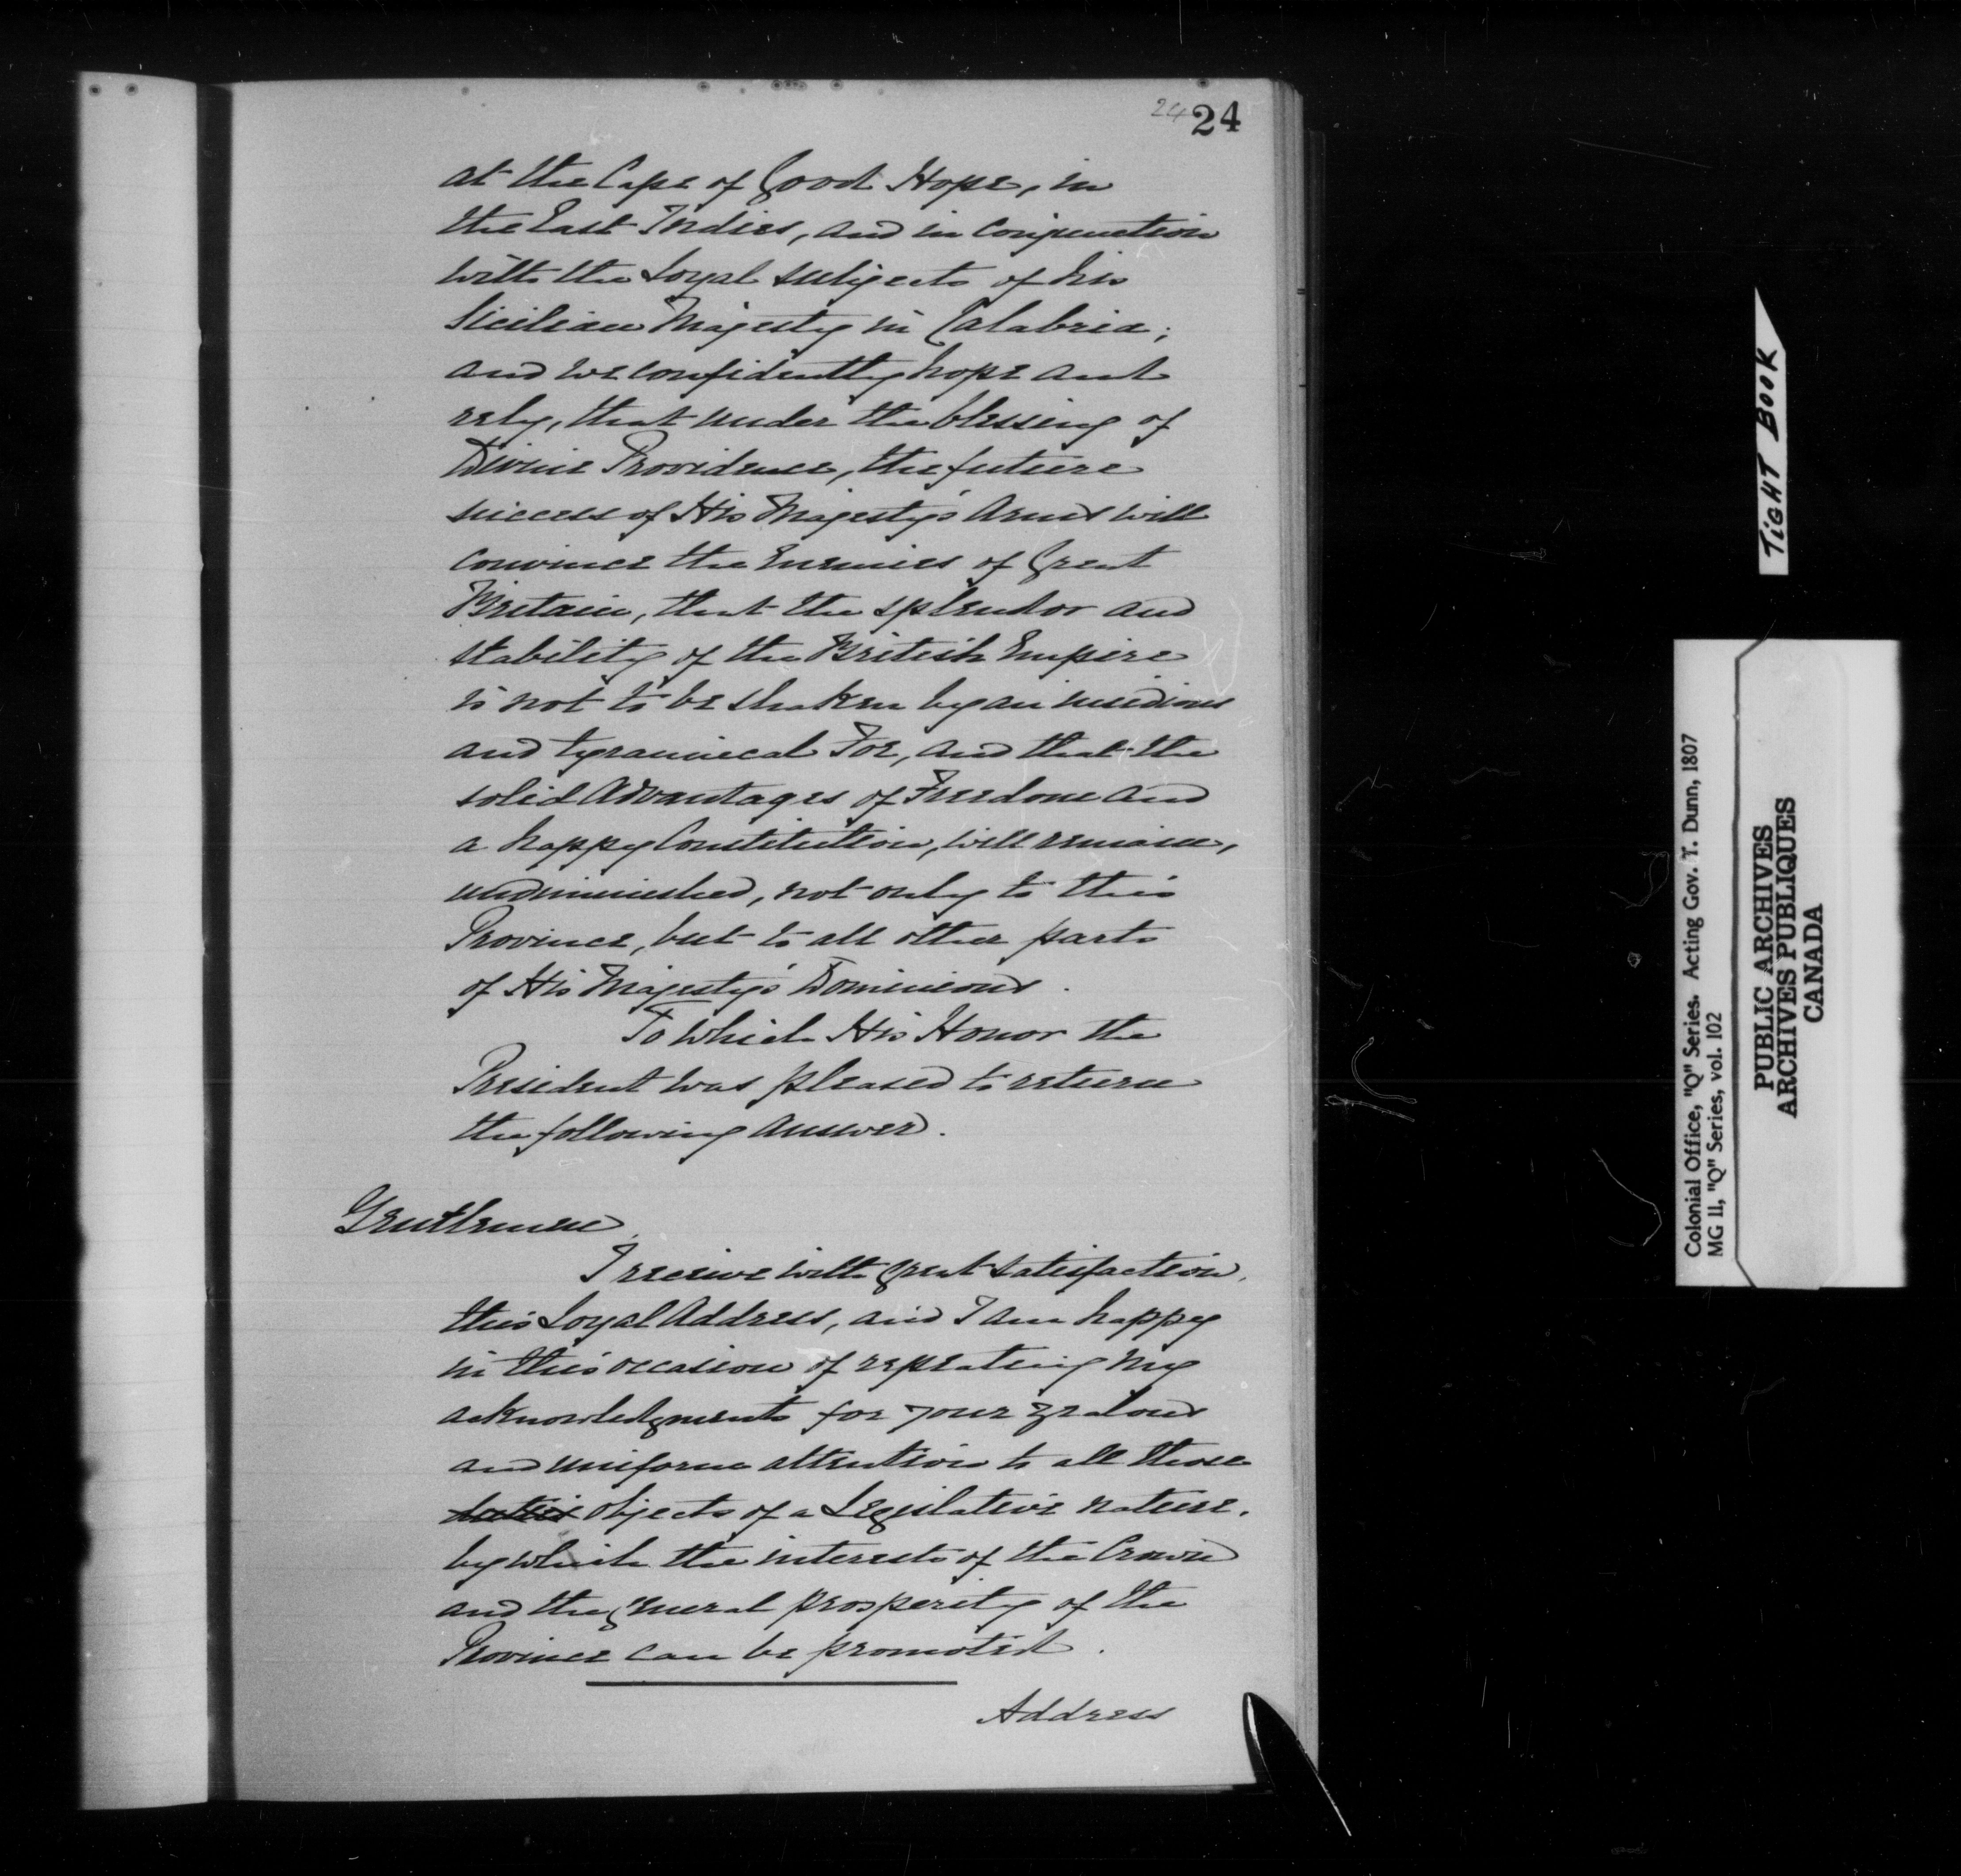 24 24
at the Cape of Good Hope, in
the East Indies, and in conjunction
with the Loyal subjects of his
Sicilian Majesty in Calabria;
and we confidently hope and
rely, that under the blessing of
Divine Providence, the future
success of His Majesty's Arms will
convince the Enemies of Great
Britain, that the splendor and
stability of the British Empire
is not to be shaken by an insidious
and tyrannical Foe, and that the
solid advantages of Freedom and
a happy Constitution, will remain,
undiminished, not only to this
Province, but to all other parts
of His Majesty's Dominions.
To which His Honor the
President was pleased to return
the following answer.
Gentlemen,
I receive with great satisfaction,
this Loyal Address, and I am happy
in this occasion of repeating my
acknowledgments for your zealous
and uniform attention to all those
objects of a Legislative nature,
by which the interests of the Crown
and the general prosperity of the
Province can be promoted.
Address
TIGHT BOOK
Colonial Office, "Q" Series. Acting Gov. T. Dunn, 1807
MG 11, "Q" Series, vol. 102
PUBLIC ARCHIVES
ARCHIVES PUBLIQUES
CANADA